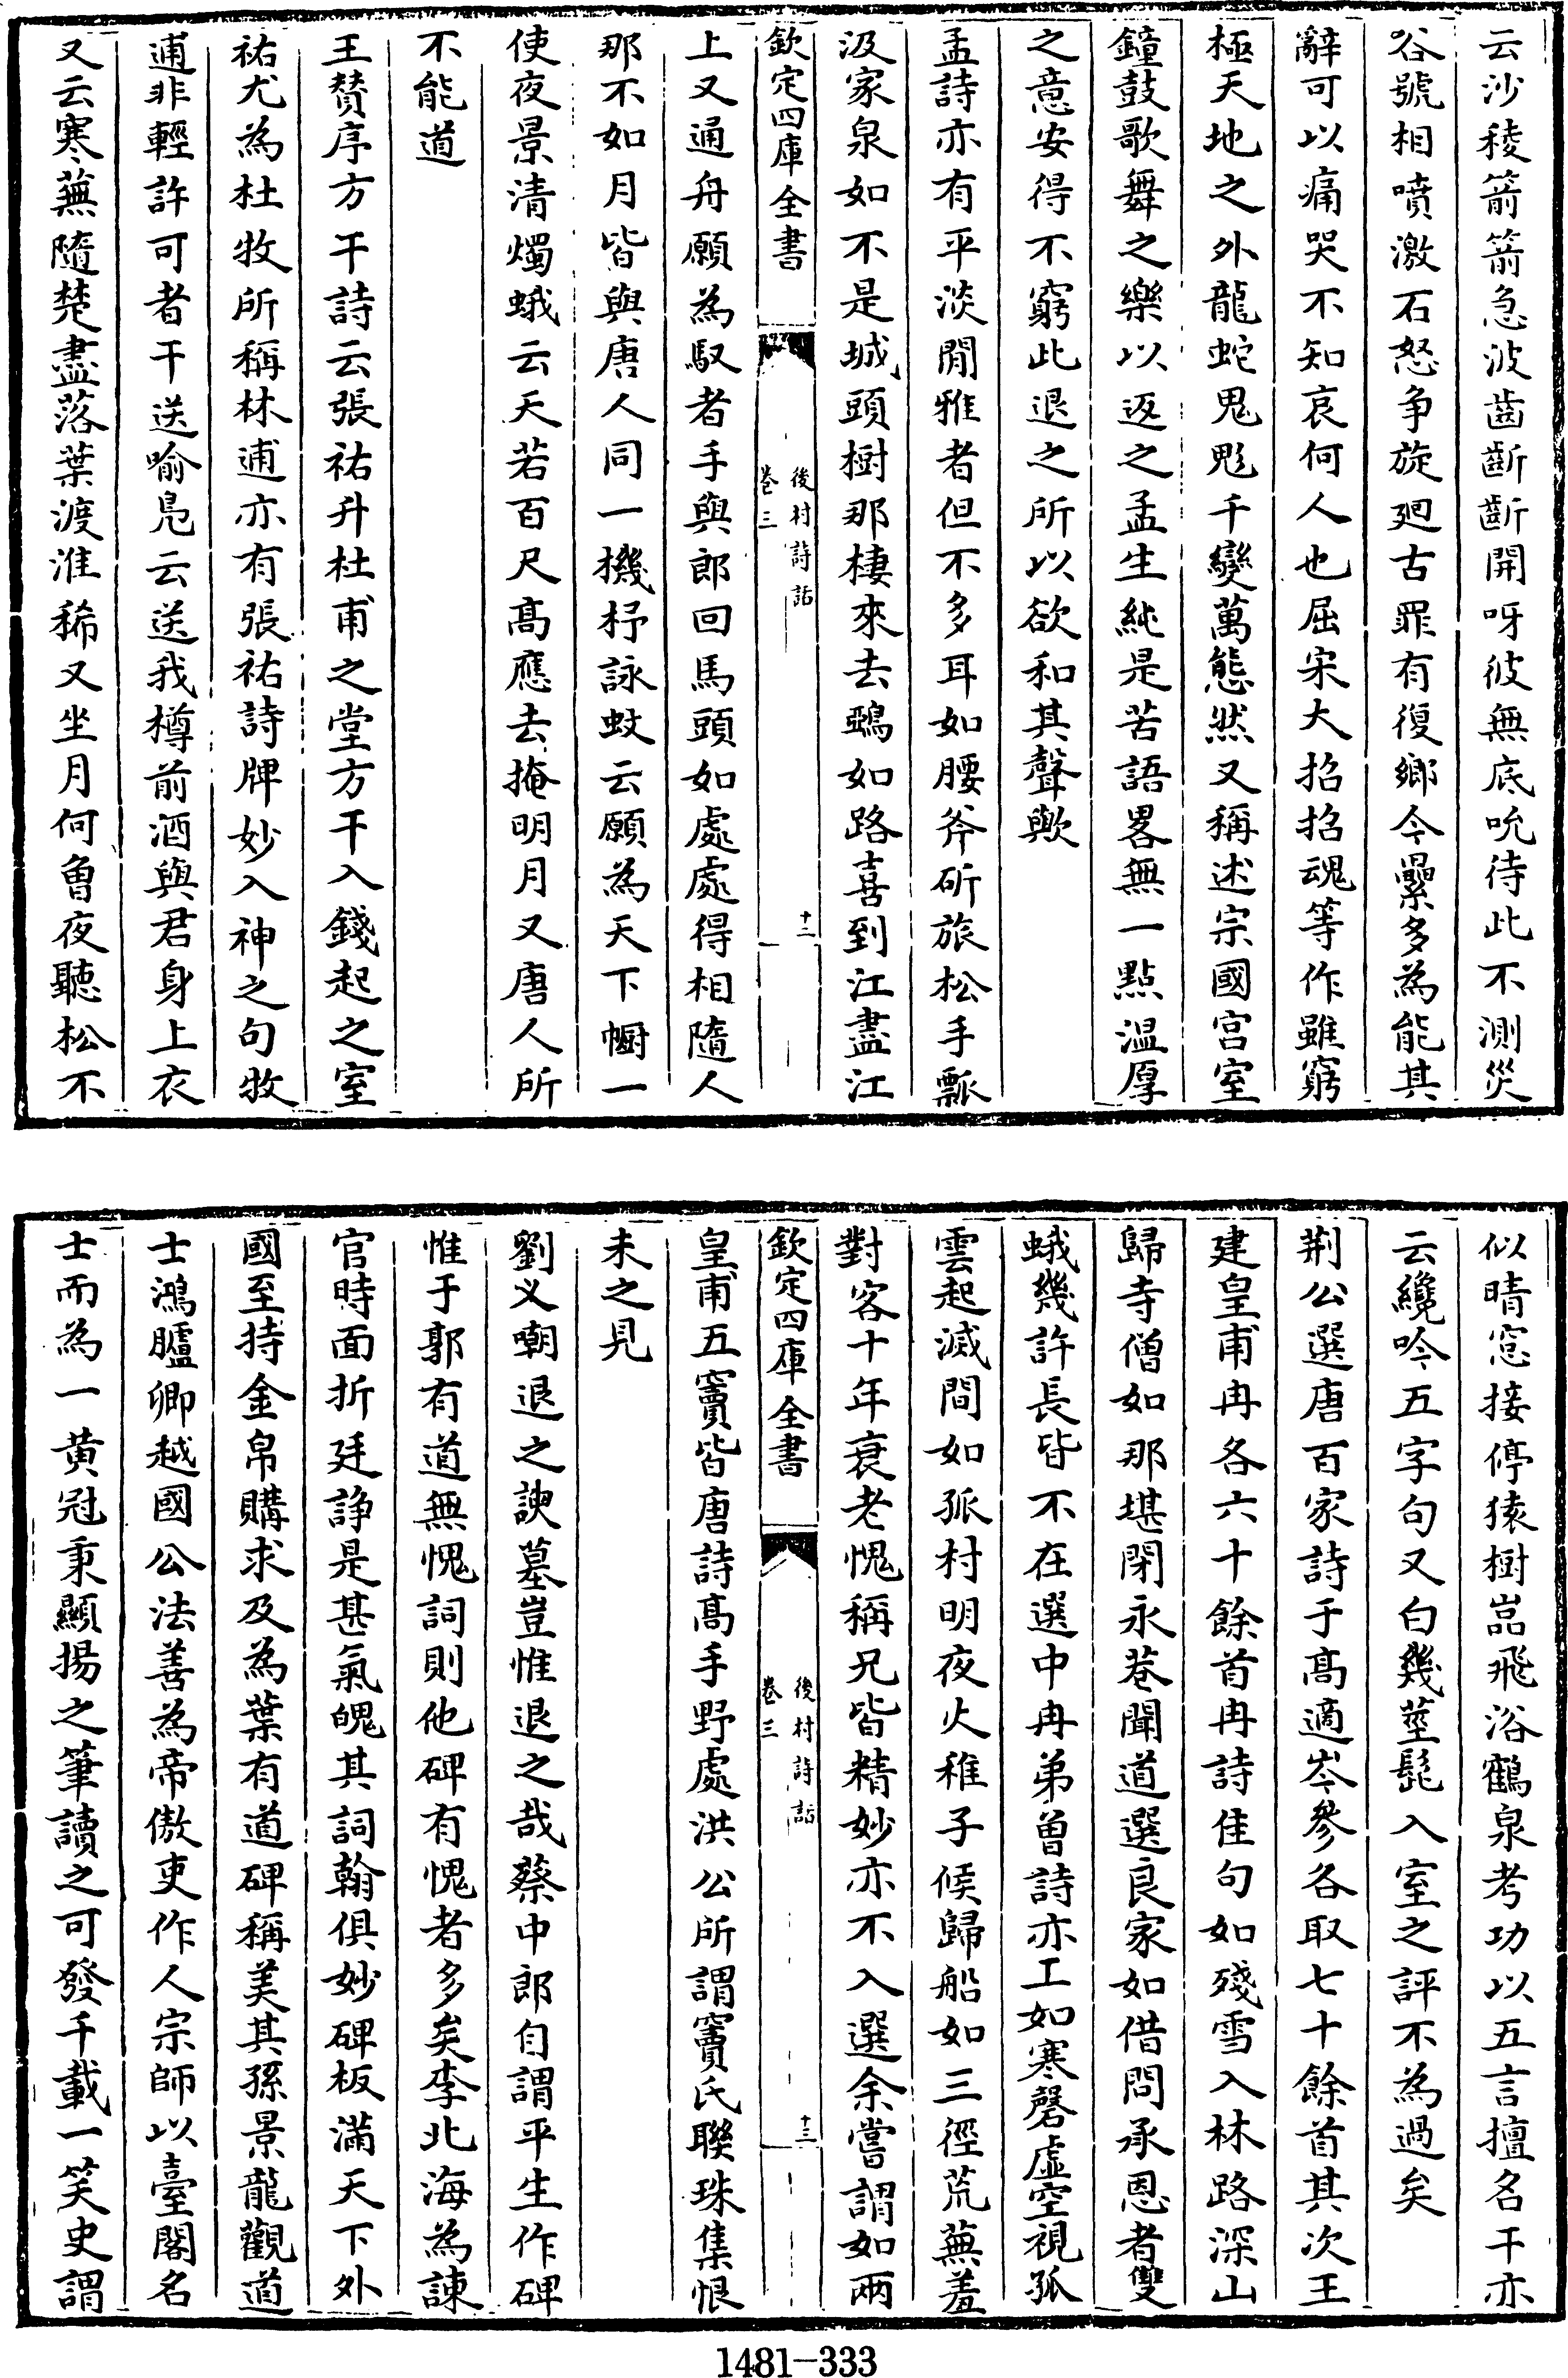 云沙稜箭箭急波齒齗齗開呀彼無底吮待此不測災
谷號相噴激石怒争旋廻古罪有復鄉今纍多為能其
辭可以痛哭不知哀何人也屈宋大招招魂等作雖窮
極天地之外龍蛇鬼彪千變萬態然又稱述宗國宫室
鐘鼓歌舞之樂以返之孟生純是苦語畧無一點温厚
之意安得不窮此退之所以欲和其聲歟
孟詩亦有平淡閒雅者但不多耳如腰斧斫旅松手瓢
汲家泉如不是城頭樹那棲來去鵶如路喜到江盡江
欽定四庫全書
後村詩話
卷三
十二
上又通舟願為馭者手與郎回馬頭如處處得相隨人
那不如月皆與唐人同一機杼詠蚊云願為天下幮一
使夜景清燭蛾云天若百尺髙應去掩明月又唐人所
不能道
王賛序方干詩云張祐升杜甫之堂方干入錢起之室
祐尤為杜牧所稱林逋亦有張祐詩牌妙入神之句牧
逋非輕許可者干送喻鳬云送我樽前酒與君身上衣
又云寒蕪隨楚盡落葉渡淮稀又坐月何曾夜聽松不
似晴窓接停猿樹嵓飛浴鶴泉考功以五言擅名干亦
云纔吟五字句又白幾莖髭入室之評不為過矣
荆公選唐百家詩于髙適岑參各取七十餘首其次王
建皇甫冉各六十餘首冉詩佳句如殘雪入林路深山
歸寺僧如那堪閉永巷聞道選良家如借問承恩者雙
蛾幾許長皆不在選中冉弟曽詩亦工如寒磬虚空視孤
雲起滅間如孤村明夜火稚子候歸船如三徑荒蕪羞
對客十年衰老愧稱兄皆精妙亦不入選余嘗謂如兩
欽定四庫全書
後村詩話
卷三
十三
皇甫五竇皆唐詩髙手野處洪公所謂竇氏聯珠集恨
未之見
劉义嘲退之諛墓豈惟退之哉蔡中郎自謂平生作碑
惟于郭有道無愧詞則他碑有愧者多矣李北海為諫
官時面折廷諍是甚氣魄其詞翰俱妙碑板滿天下外
國至持金帛購求及為葉有道碑稱美其孫景龍觀道
士鴻臚卿越國公法善為帝傲吏作人宗師以臺閣名
士而為一黄冠秉顯揚之筆讀之可發千載一笑史謂
1481-333